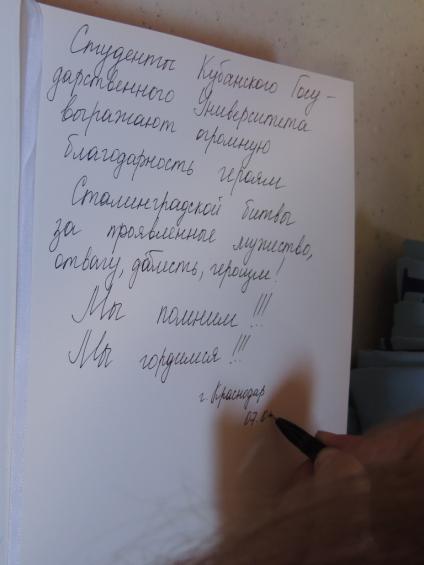 Студенты Кубанского Госу-
дарственного Университета
выражают огромную
благодарность героям
Сталинградской битвы
за проявленные мужество,
отвагу, доблесть, героизм!
Мы помним!!!
Мы гордимся!!!
г. Краснодар
07.0